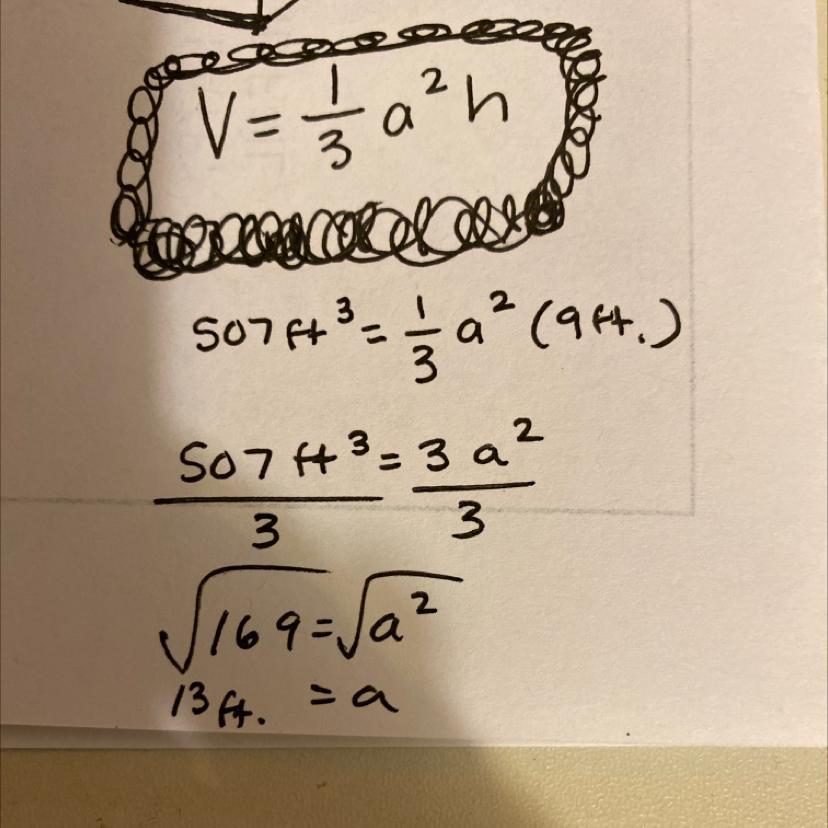 V = 1/3 a² h
507 ft³ = 1/3 a² (9 ft.)
507 ft³/3 = 3 a²/3
√169 = √a²
13 ft. = a